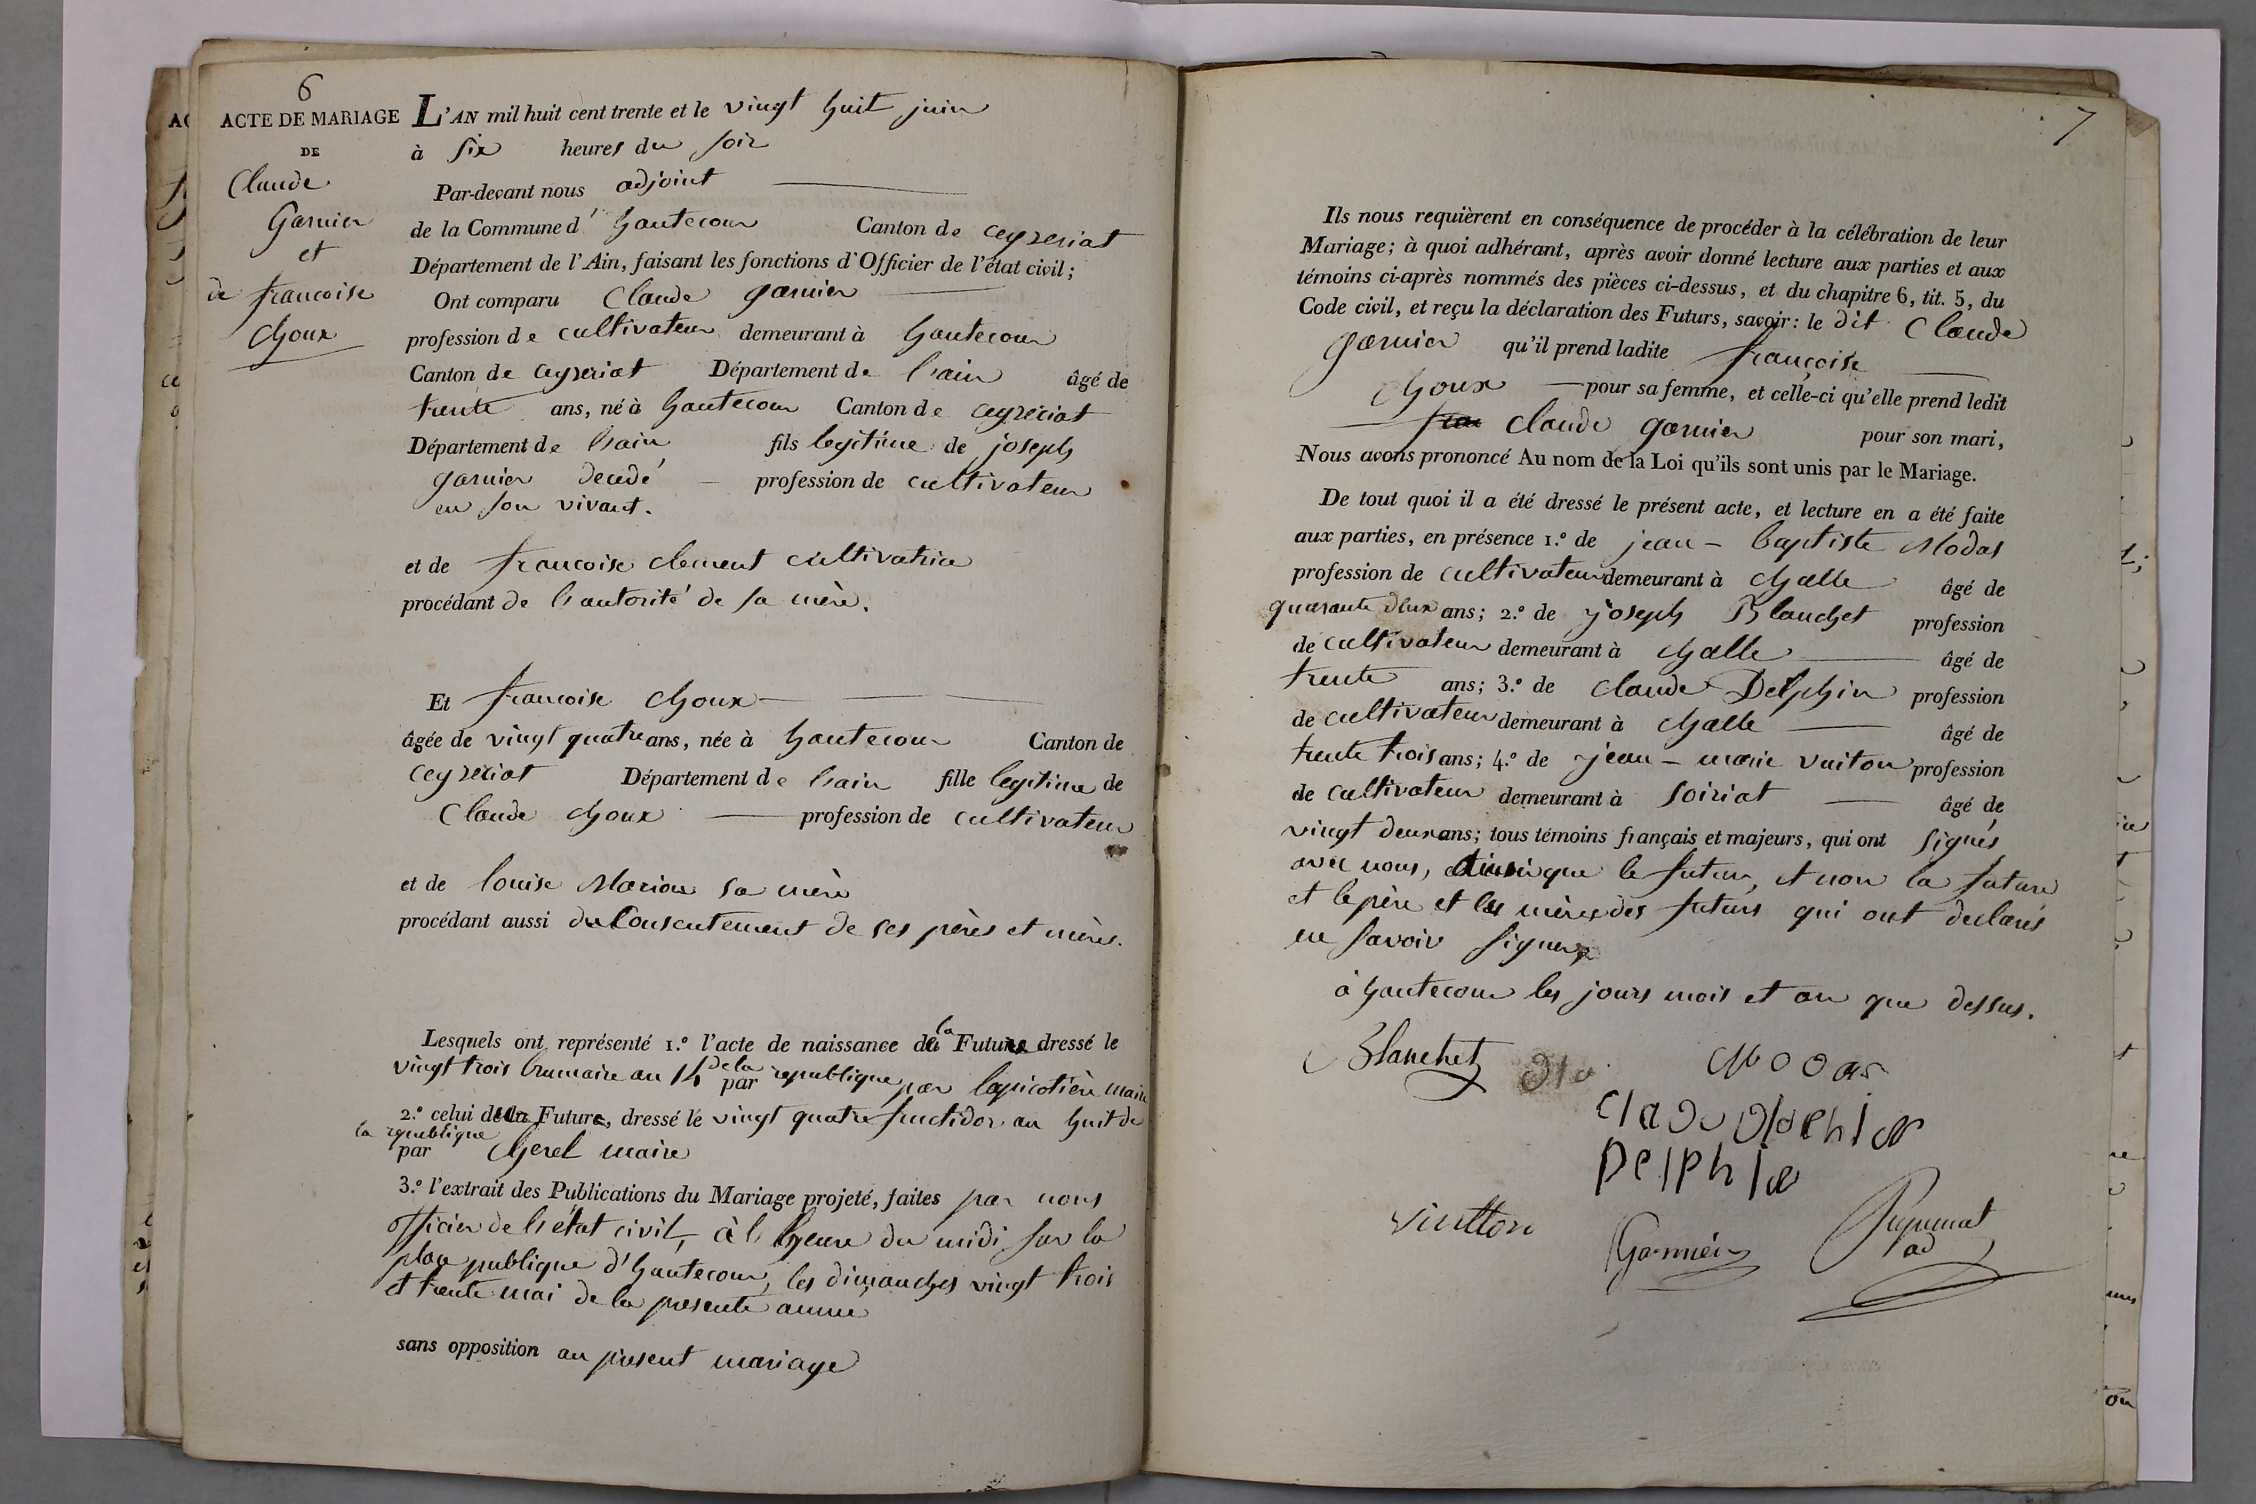 6
ACTE DE MARIAGE
DE
Claude
Garnier
et
de francoise
Choux
L'AN mil huit cent trente et le vingt huit juin
à six heures du soir
Par-devant nous adjoint
de la Commune d'hautecour Canton de ceyzeriat
Département de l'Ain, faisant les fonctions d'Officier de l'état civil;
Ont comparu Claude garnier
profession de cultivateur demeurant à hautecour
Canton de ceyzeriat Département de l'ain âgé de
trente ans, né à hautecour Canton de ceyzeriat
Département de l'ain fils legitime de joseph
garnier decedé profession de cultivateur
en son vivant.
et de francoise clement cultivatrice
procédant de l'autorité de sa mère.
Et francoise choux
âgée de vingt quatre ans, née à hautecour Canton de
ceyzeriat Département de l'ain fille legitime de
Claude choux profession de cultivateur
et de louise Marion sa mère
procédant aussi du Consentement de ses pères et mères.
Lesquels ont représenté 1.º l'acte de naissance de la Future dressé le
vingt trois brumaire an 14 de la republique par lepicotière maire
2.º celui du Futur, dressé le vingt quatre fructidor an huit de
la republique
par Cherel maire
3.º l'extrait des Publications du Mariage projeté, faites par nous
officier de l'état civil, à l'heure du midi sur la
place publique d'hautecour, les dimanches vingt trois
et trente mai de la presente année
sans opposition au present mariage
7
Ils nous requièrent en conséquence de procéder à la célébration de leur
Mariage; à quoi adhérant, après avoir donné lecture aux parties et aux
témoins ci-après nommés des pièces ci-dessus, et du chapitre 6, tit. 5, du
Code civil, et reçu la déclaration des Futurs, savoir: le dit Claude
garnier qu'il prend ladite françoise
choux pour sa femme, et celle-ci qu'elle prend ledit
claude garnier pour son mari,
Nous avons prononcé Au nom de la Loi qu'ils sont unis par le Mariage.
De tout quoi il a été dressé le présent acte, et lecture en a été faite
aux parties, en présence 1.º de jean-baptiste Modas
profession de cultivateur demeurant à challe âgé de
quarante deux ans; 2.º de joseph Blanchet profession
de cultivateur demeurant à challe âgé de
trente ans; 3.º de claude Delphin profession
de cultivateur demeurant à challe âgé de
trente trois ans; 4.º de jean-marie vuiton profession
de cultivateur demeurant à soiriat âgé de
vingt deux ans; tous témoins français et majeurs, qui ont signés
avec nous, ainsi que le futur, et non la future
et le père et les mères des futurs qui ont declarés
ne savoir signer,
à hautecour les jours mois et an que dessus.
Blanchet
Delphin
vuitton
Garnier
ad